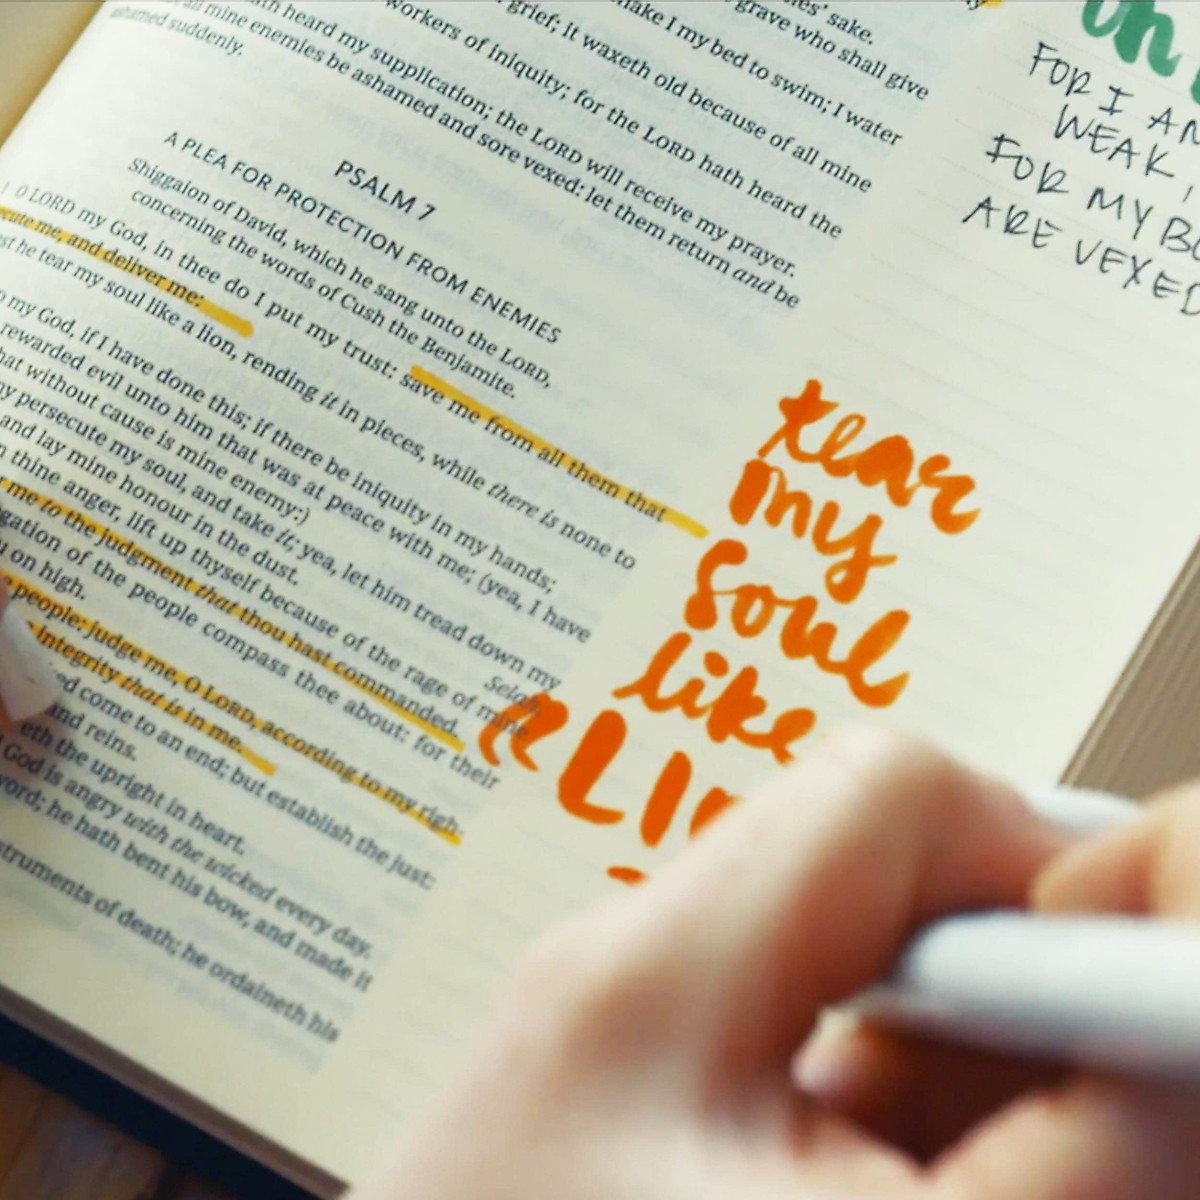 ies' sake.
grave who shall give
make I my bed to swim; I water
grief; it waxeth old because of all mine
workers of iniquity; for the LORD hath heard the
ath heard my supplication; the LORD will receive my prayer.
all mine enemies be ashamed and sore vexed: let them return and be
ashamed suddenly.
PSALM 7
A PLEA FOR PROTECTION FROM ENEMIES
Shiggaion of David, which he sang unto the LORD,
concerning the words of Cush the Benjamite.
1 O LORD my God, in thee do I put my trust: save me from all them that
ecute me, and deliver me:
st he tear my soul like a lion, rending it in pieces, while there is none to
my God, if I have done this; if there be iniquity in my hands;
rewarded evil unto him that was at peace with me; (yea, I have
hat without cause is mine enemy:)
y persecute my soul, and take it; yea, let him tread down my
and lay mine honour in the dust.
Selah.
n thine anger, lift up thyself because of the rage of mine
r me to the judgment that thou hast commanded.
gation of the people compass thee about: for their
u on high.
people: judge me, O LORD, according to my righ
integrity that is in me.
ed come to an end; but establish the just:
and reins.
eth the upright in heart.
God is angry with the wicked every day.
word; he hath bent his bow, and made it
struments of death; he ordaineth his
oh
FOR I AM
WEAK,
FOR MY BO
ARE VEXED
tear
my
soul
like
"LI